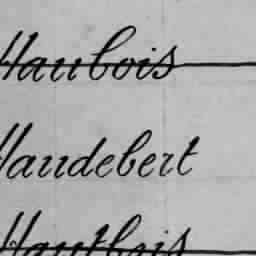 Haubois
Haudebert
Hautbois